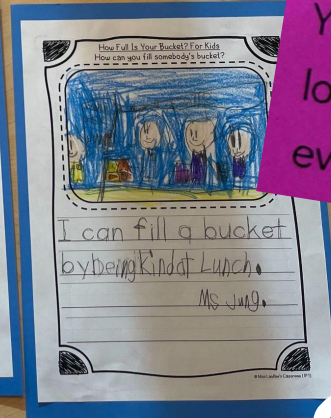 How Full Is Your Bucket? For Kids
How can you fill somebody's bucket?
I can fill a bucket
by being kind at Lunch.
Ms Jung.
Y
lo
ev